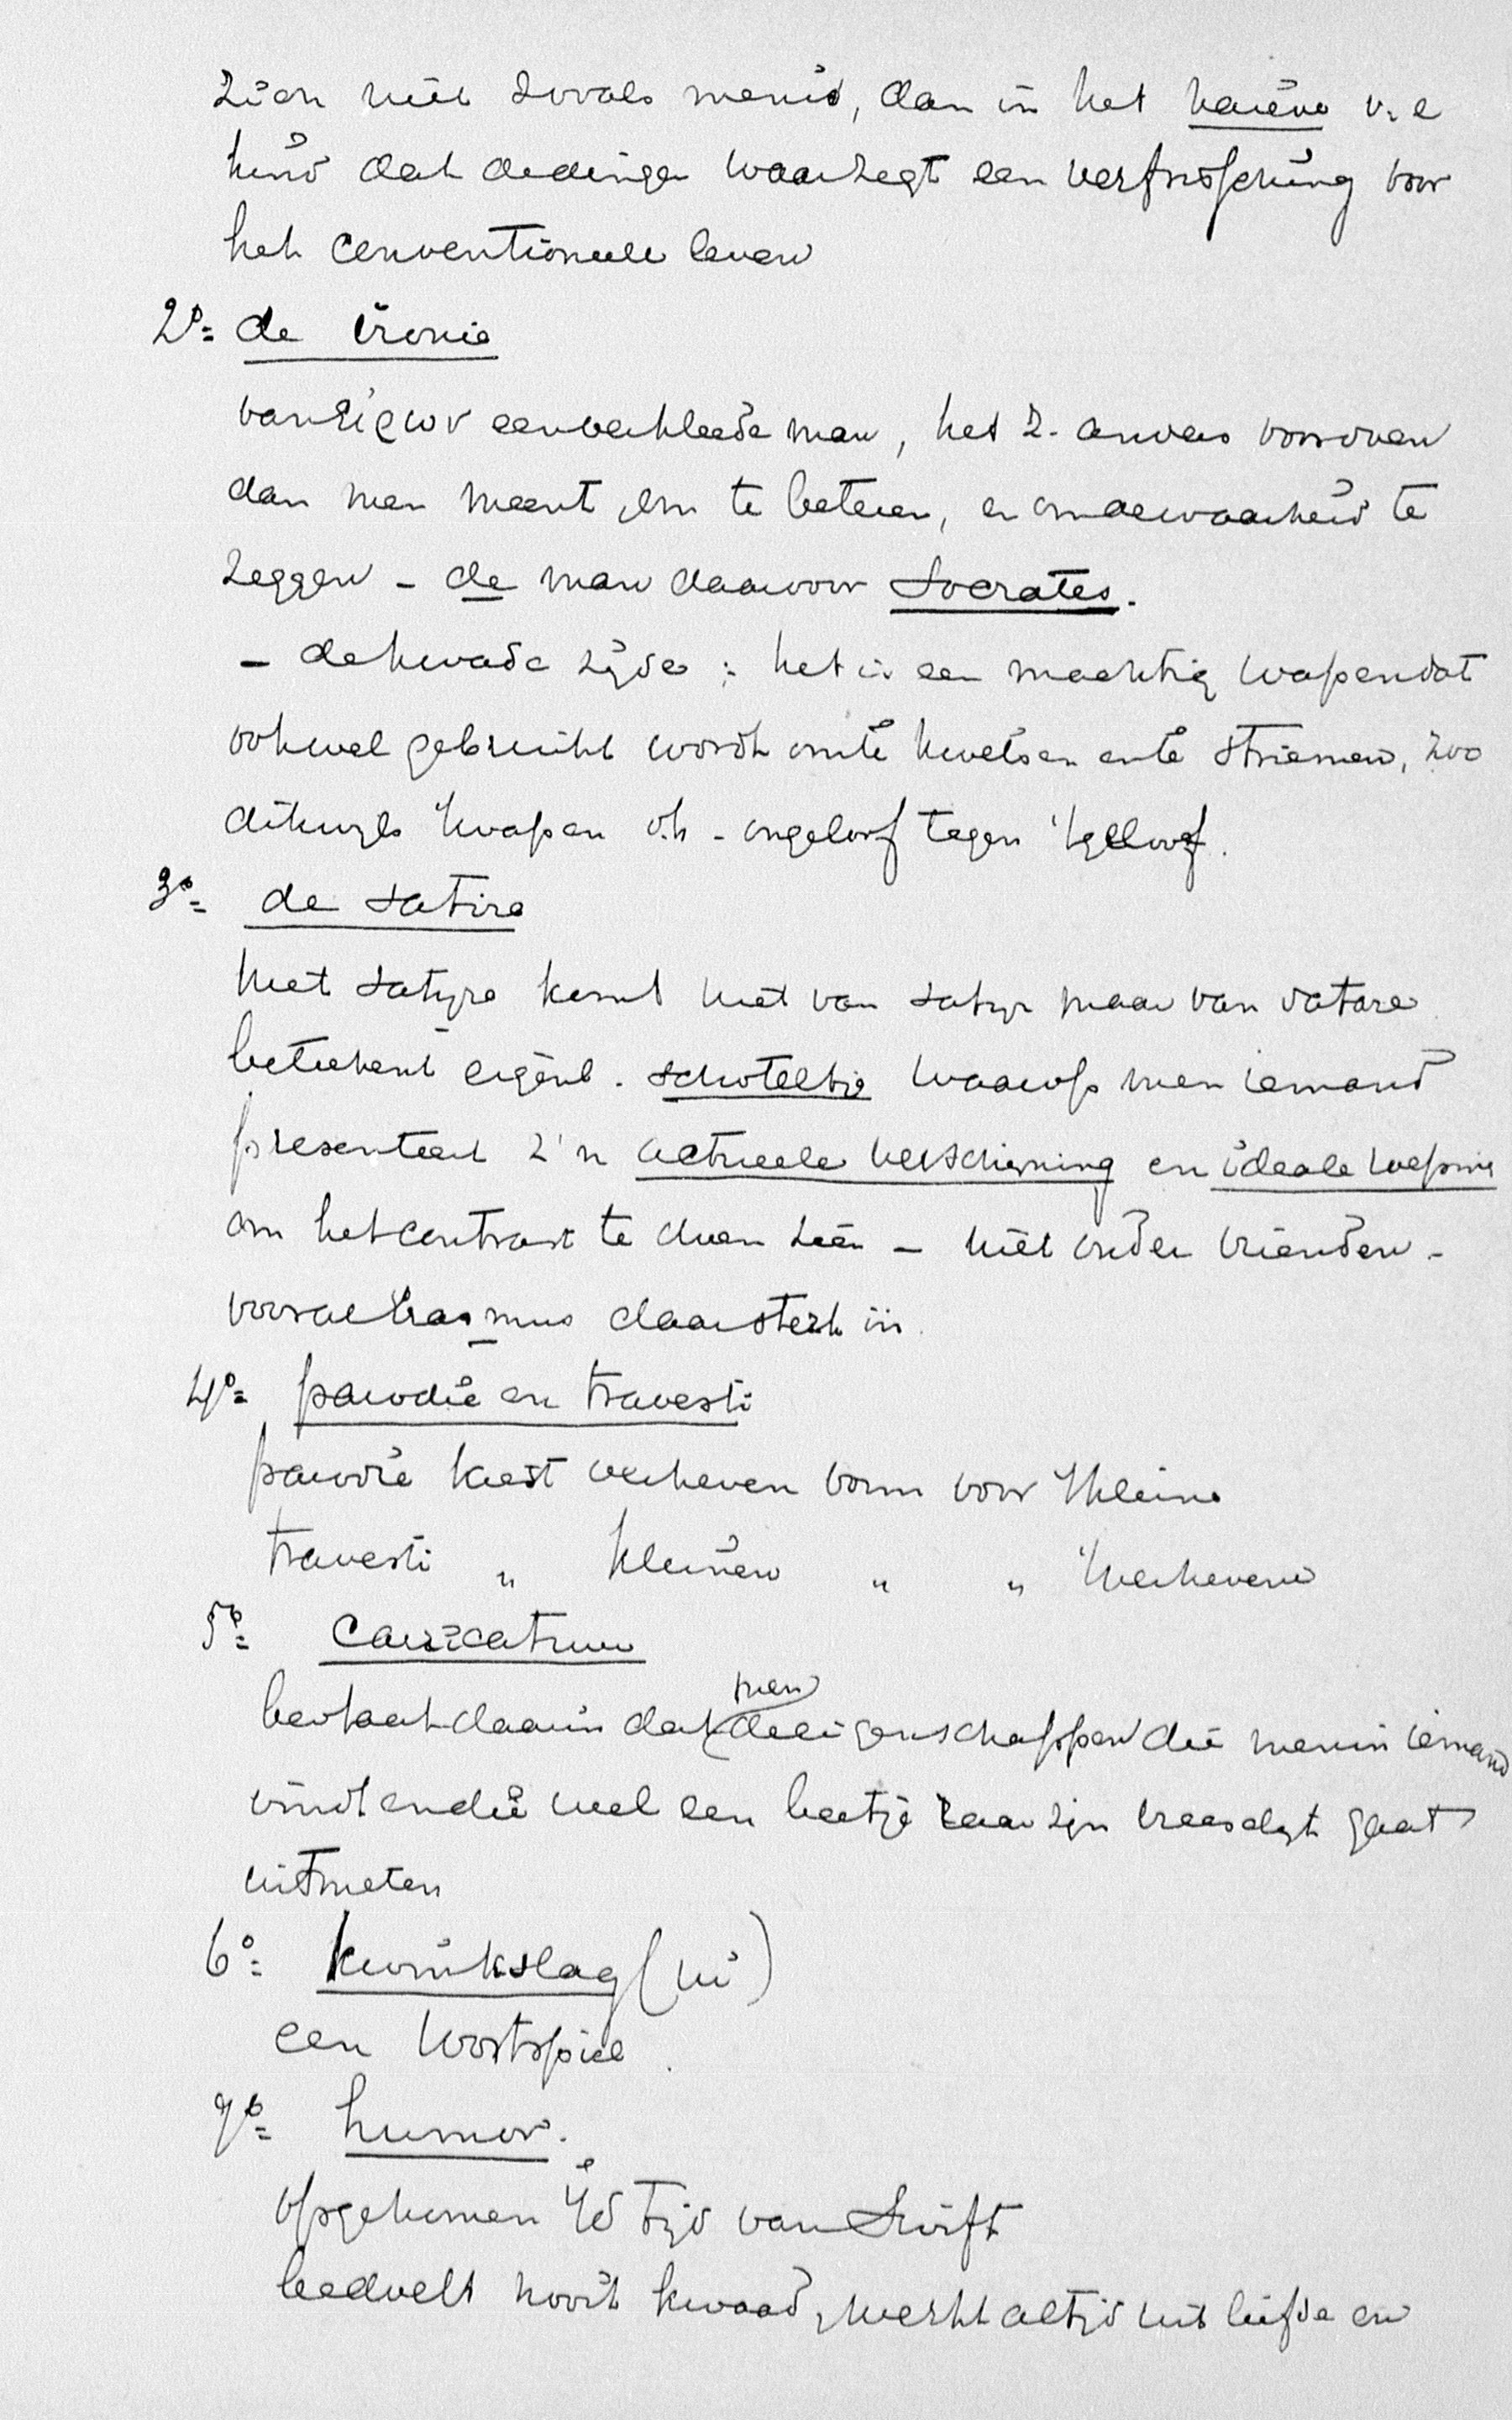 zien niet zooals men is, dan in het naieve v. e
kind dat de dingen waar zegt een verfrissching voor
het conventioneele leven
2°= de ironie
van εἴρων een verkleede man, het z. anders voordoen
dan men meent, om te beteren, en om de waarheid te
zeggen - de man daarvoor Socrates.
- de kwade zijde: het is een machtig wapen dat
ook wel gebruikt wordt om te kwetsen en te striemen, zoo
dikwijls 't wapen v.h. ongeloof tegen 't geloof.
3°= de satire
het satyre komt niet van satyr maar van satare
beteekent eigenl. schoteltje waarop men iemand
presenteert z'n actueele verschijning en ideale
om het contrast te doen zien - niet onder vrienden -
vooral Erasmus daar sterk in.
4°= parodie en travesti
parodie kiest verheven vorm voor 't kleine
travesti " kleinen " " 't verhevene
5°= carricatuur
bestaat daarin dat men de eigenschappen die men in iemand
vindt en die wel een beetje raar zijn breedelijk gaat
uitmeten
6°= kwinkslag (ui)
een woordspiel.
7°= humor.
opgekomen i/d tijd van Swift
bedoelt nooit kwaad, werkt altijd uit liefde en